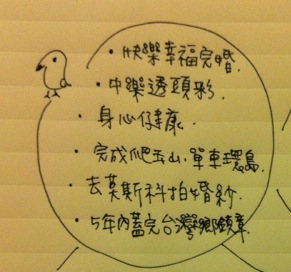 ・快樂幸福完婚.
・中樂透頭彩.
・身心仔康.
・完成爬玉山.單車環島.
・去莫斯科拍婚紗.
・5年內蓋完台灣鄉鎮章